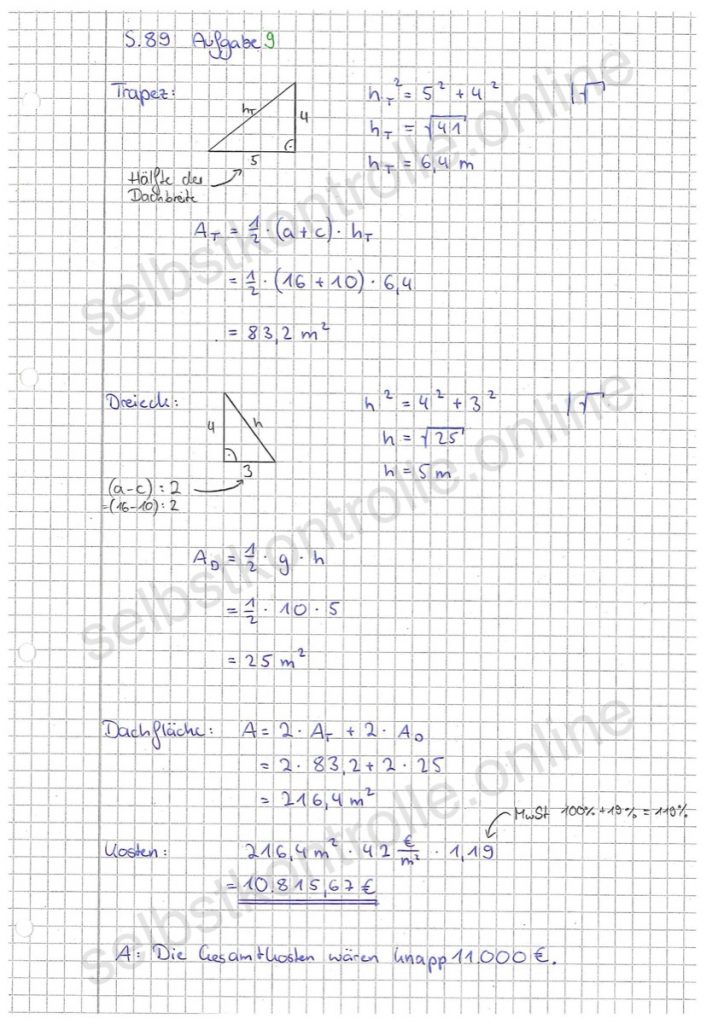 S.89 Aufgabe 9
Trapez:
h_T
4
5
Hälfte der
Dachbreite
h_T² = 5² + 4² |√
h_T = √41
h_T = 6,4 m
A_T = 1/2 · (a + c) · h_T
= 1/2 · (16 + 10) · 6,4
= 83,2 m²
Dreieck:
4
h
3
(a-c) : 2
=(16-10) : 2
h² = 4² + 3² |√
h = √25
h = 5 m
A_D = 1/2 · g · h
= 1/2 · 10 · 5
= 25 m²
Dachfläche: A = 2 · A_T + 2 · A_D
= 2 · 83,2 + 2 · 25
= 216,4 m²
MwSt 100% + 19% = 119%
Kosten: 216,4 m² · 42 €/m² · 1,19
= 10.815,67 €
A: Die Gesamtkosten wären knapp 11.000 €.
selbstkontrolle.online
selbstkontrolle.online
selbstkontrolle.online